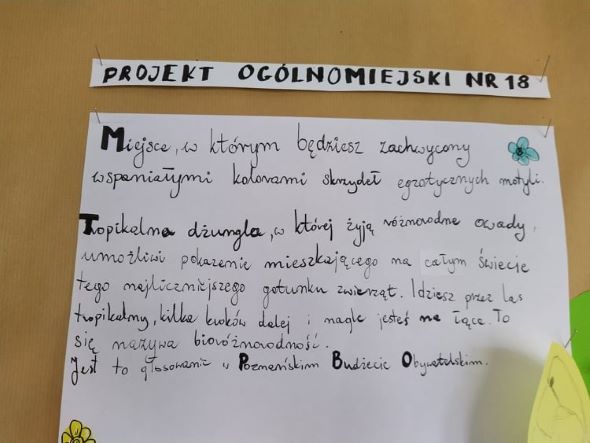 PROJEKT OGÓLNOMIEJSKI NR 18
Miejsce, w którym będziesz zachwycony
wspaniałymi kolorami skrzydeł egzotycznych motyli.
Tropikalna dżungla, w której żyją różnorodne owady,
umożliwi pokazanie mieszkającego na całym świecie
tego najliczniejszego gatunku zwierząt. Idziesz przez las
tropikalny, kilka kroków dalej i nagle jesteś na łące. To
się nazywa bioróżnorodność.
Jest to głosowanie w Poznańskim Budżecie Obywatelskim.